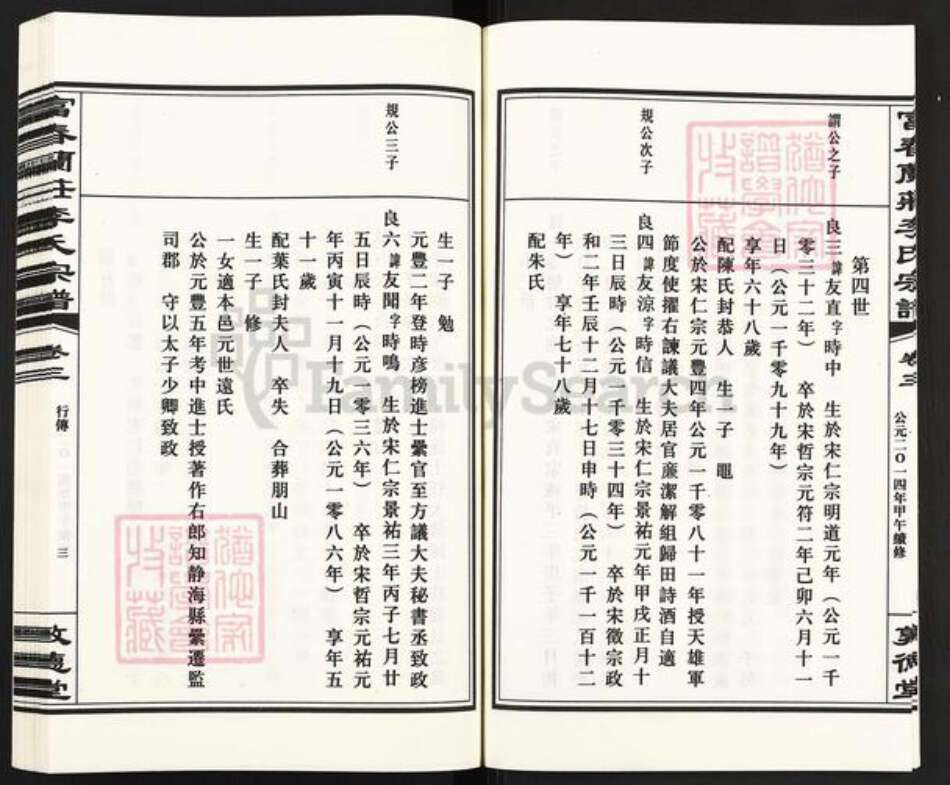 公元二〇一四年甲午續修
第四世
謂公之子
良三諱友直字時中　生於宋仁宗明道元年（公元一千
零三十二年）　卒於宋哲宗元符二年己卯六月十一
日（公元一千零九十九年）
享年六十八歲
配陳氏封恭人　生一子
公於宋仁宗元豐四年公元一千零八十一年授天雄軍
節度使擢右諫議大夫居官廉潔解組歸田詩酒自適
規公次子
良四諱友涼字時信　生於宋仁宗景祐元年甲戌正月十
三日辰時（公元一千零三十四年）　卒於宋徽宗政
和二年壬辰十二月十七日申時（公元一千一百十二
年）　享年七十八歲
配朱氏
生一子　勉
元豐二年登時彥榜進士纍官至方議大夫秘書丞致政
規公三子
良六諱友聞字時鳴　生於宋仁宗景祐三年丙子七月廿
五日辰時（公元一零三六年）　卒於宋哲宗元祐元
年丙寅十一月十九日（公元一零八六年）　享年五
十一歲
配葉氏封夫人　卒失　合葬朋山
生一子　修
一女適本邑元世遠氏
公於元豐五年考中進士授著作右郎知静海縣纍遷監
司郡　守以太子少卿致政
富春蘭莊李氏宗譜
卷三
行傳
三
敦德堂
FamilySearch